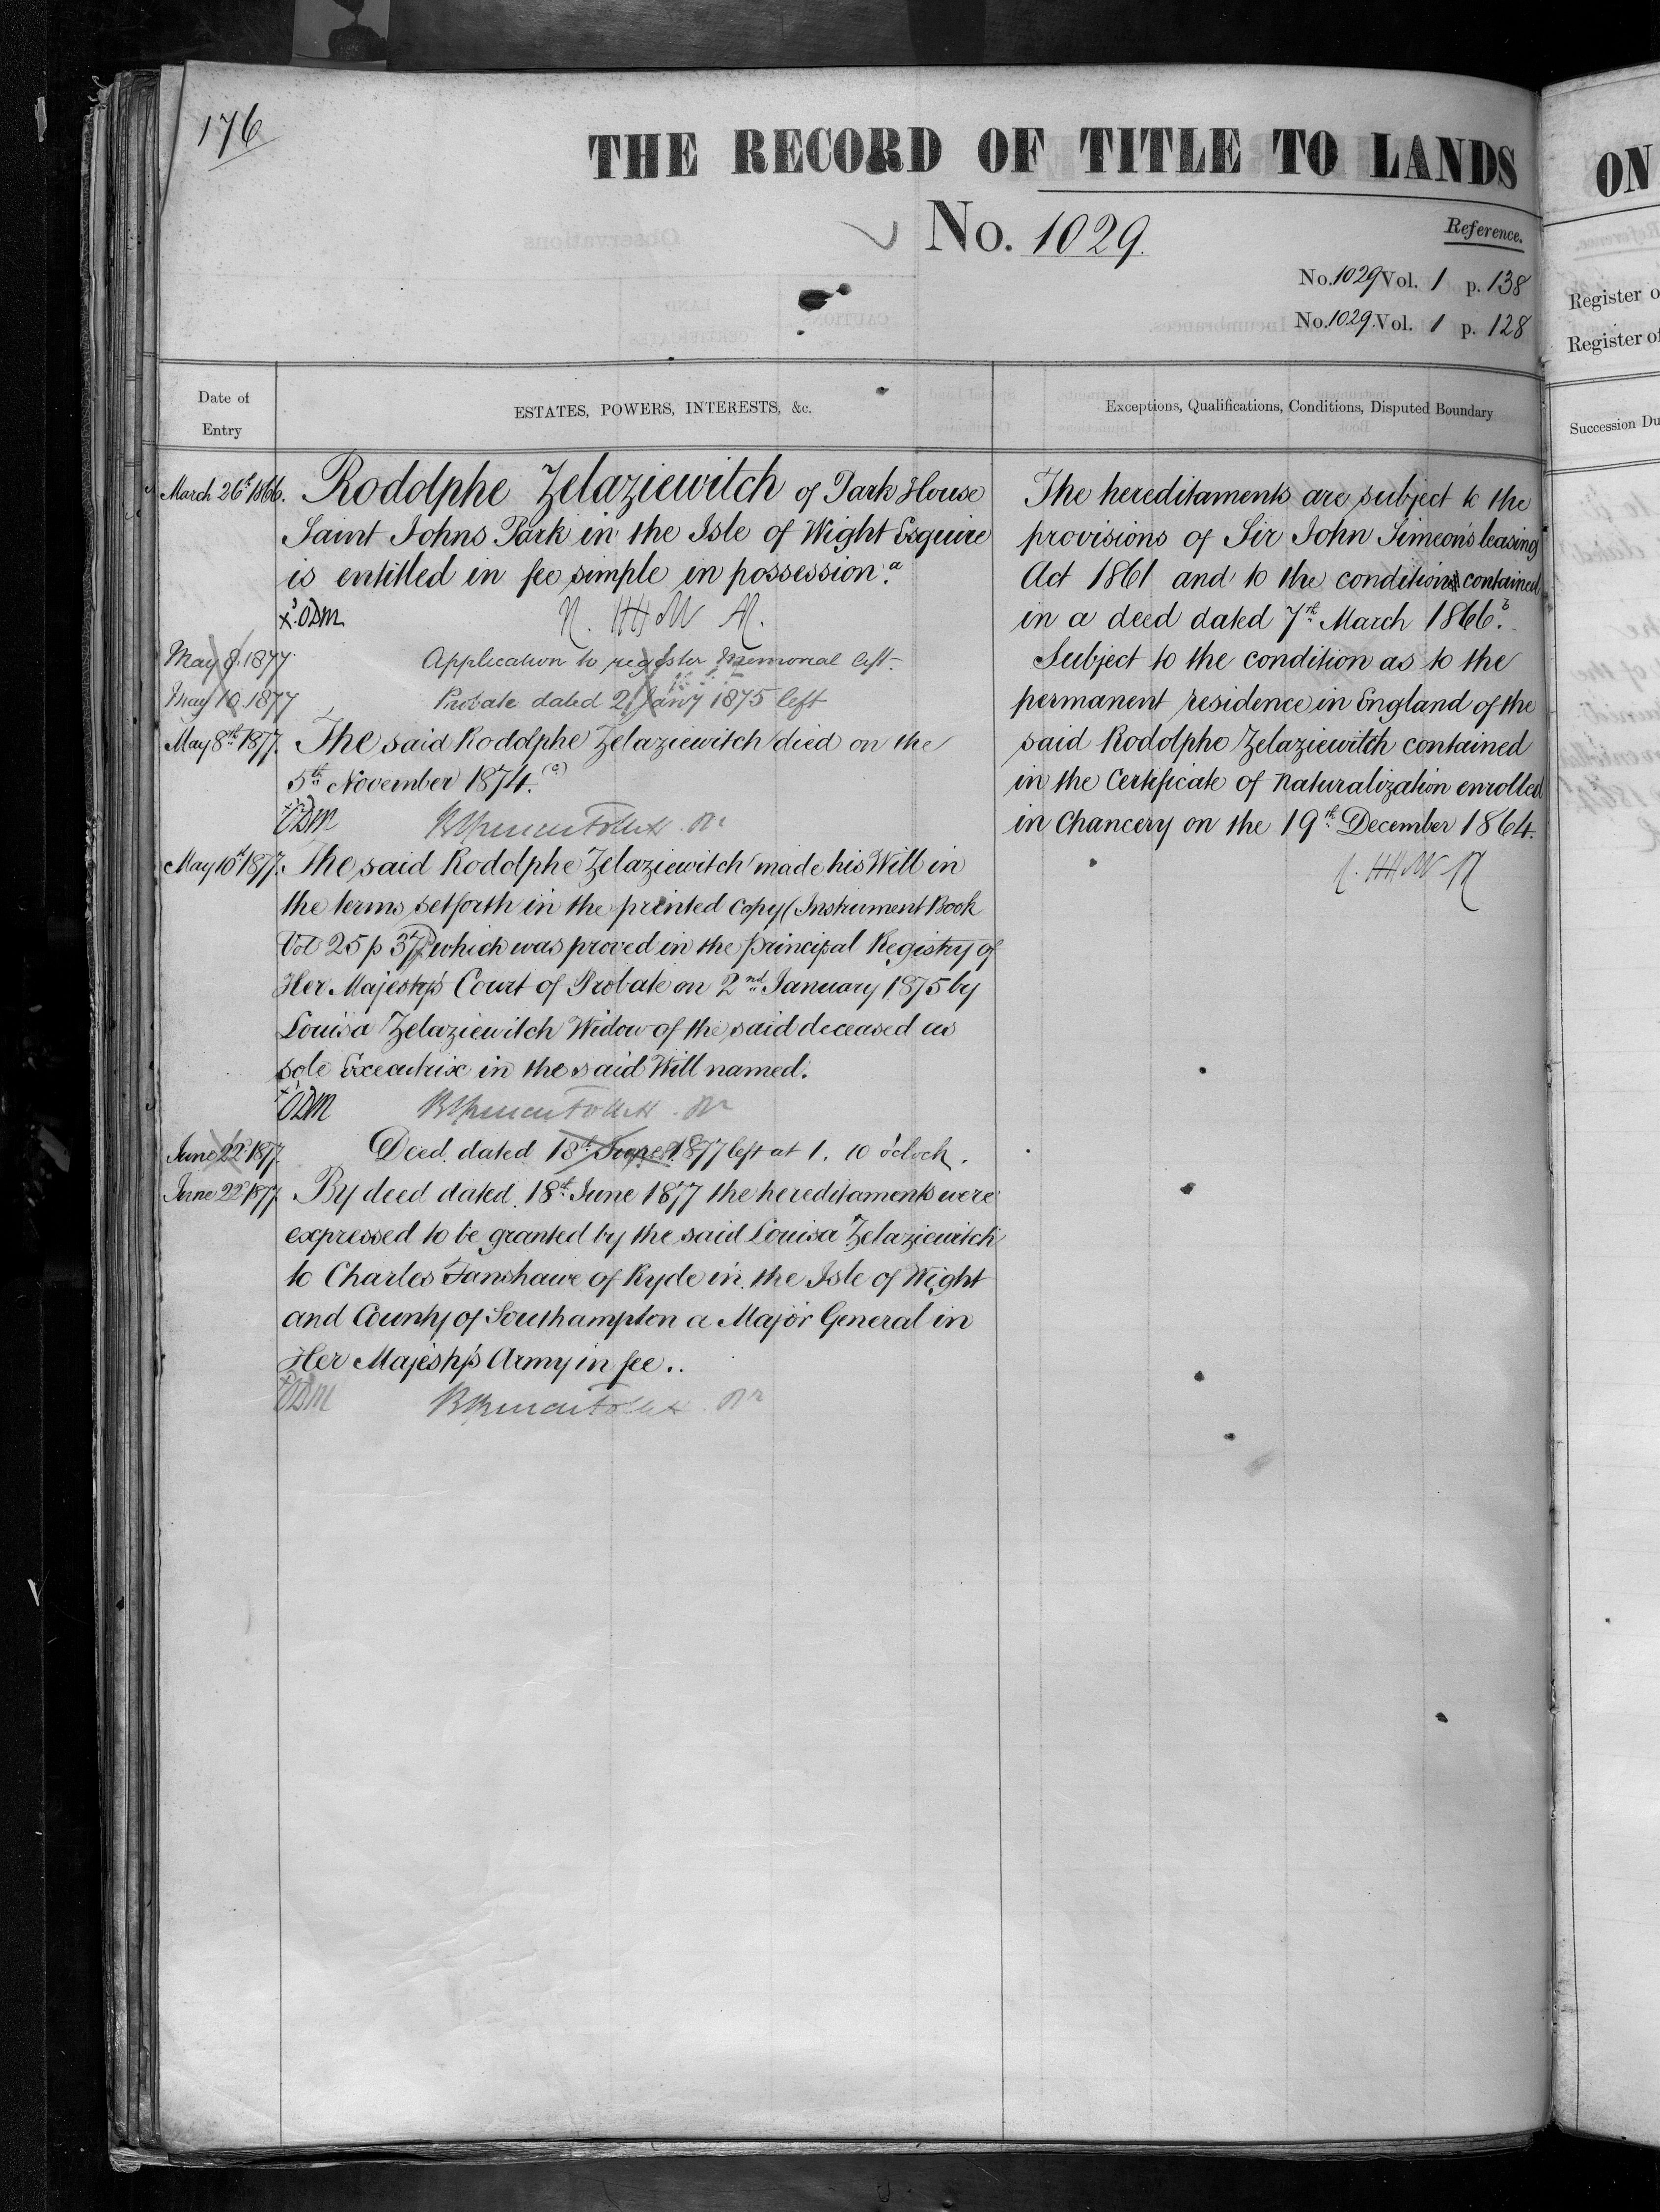 176
THE RECORD OF TITLE TO LANDS
No. 1029.
Reference.
No. 1029 Vol. 1 p. 138
No. 1029. Vol. 1 p. 128
Date of
Entry
ESTATES, POWERS, INTERESTS, &c.
Exceptions, Qualifications, Conditions, Disputed Boundary
March 26th 1866. Rodolphe Zelaziewitch of Park House
Saint Johns Park in the Isle of Wight Esquire
is entitled in fee simple in possession. a
x. ODM
May 8. 1877 Application to register Memorial left.
May 10. 1877 Probate dated 2 Jany 1875 left
May 8th 1877. The said Rodolphe Zelaziewitch died on the
5th November 1874. (c)
ODM
May 10th 1877. The said Rodolphe Zelaziewitch made his Will in
the terms set forth in the printed copy (Instrument Book
Vol 25 p 37) which was proved in the principal Registry of
Her Majesty's Court of Probate on 2nd January 1875 by
Louisa Zelaziewitch Widow of the said deceased as
sole Executrix in the said Will named.
ODM
June 22 1877. Deed dated 18th June 1877 left at 1. 10 o'clock.
June 22 1877. By deed dated 18th June 1877 the hereditaments were
expressed to be granted by the said Louisa Zelaziewitch
to Charles Fanshawe of Ryde in the Isle of Wight
and County of Southampton a Major General in
Her Majesty's Army in fee..
ODM
The hereditaments are subject to the
provisions of Sir John Simeon's leasing
Act 1861 and to the conditions contained
in a deed dated 7th March 1866. b
Subject to the condition as to the
permanent residence in England of the
said Rodolphe Zelaziewitch contained
in the Certificate of Naturalization enrolled
in Chancery on the 19th December 1864.
ON
Register o
Register of
Succession Du